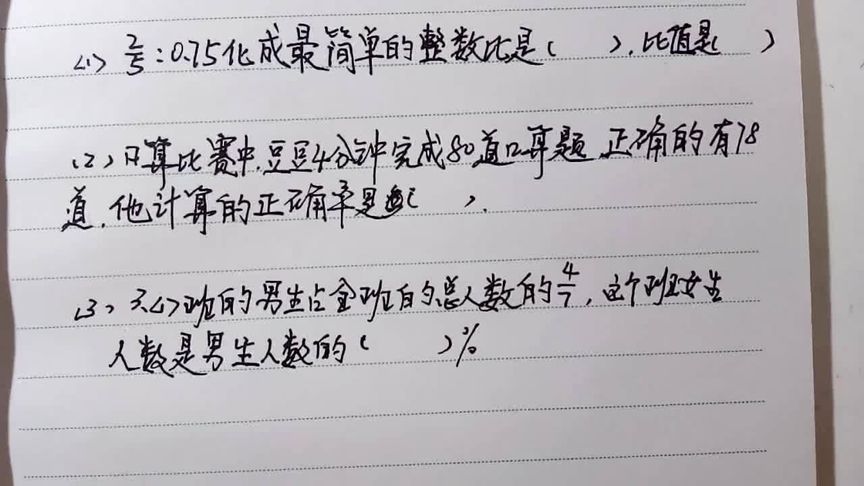 (1) 2/5 : 0.75化成最简单的整数比是( ), 比值是( )
(2) 口算比赛中,豆豆4分钟完成80道口算题,正确的有78
道,他计算的正确率是( ).
(3) 3.(1)班的男生占全班的总人数的4/7, 这个班女生
人数是男生人数的( )%